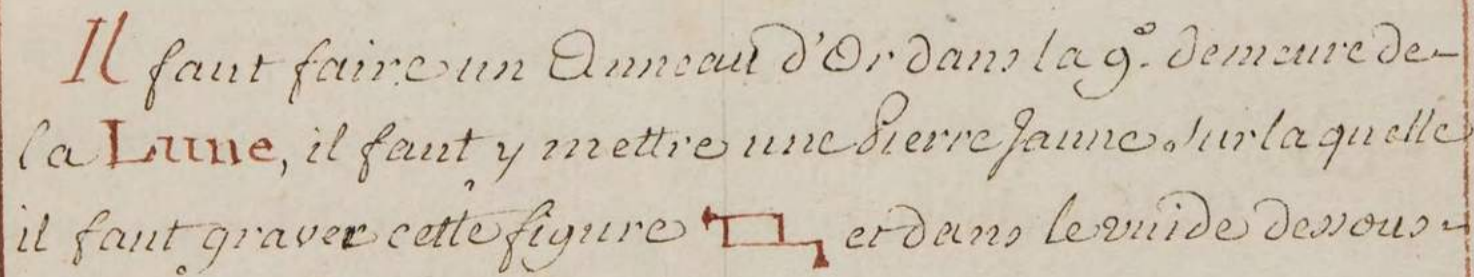 Il faut faire un Anneau d'Or dans la 9.e demeure de
la Lune, il faut y mettre une Pierre Jaune sur laquelle
il faut graver cette figure et dans le vuide dessous